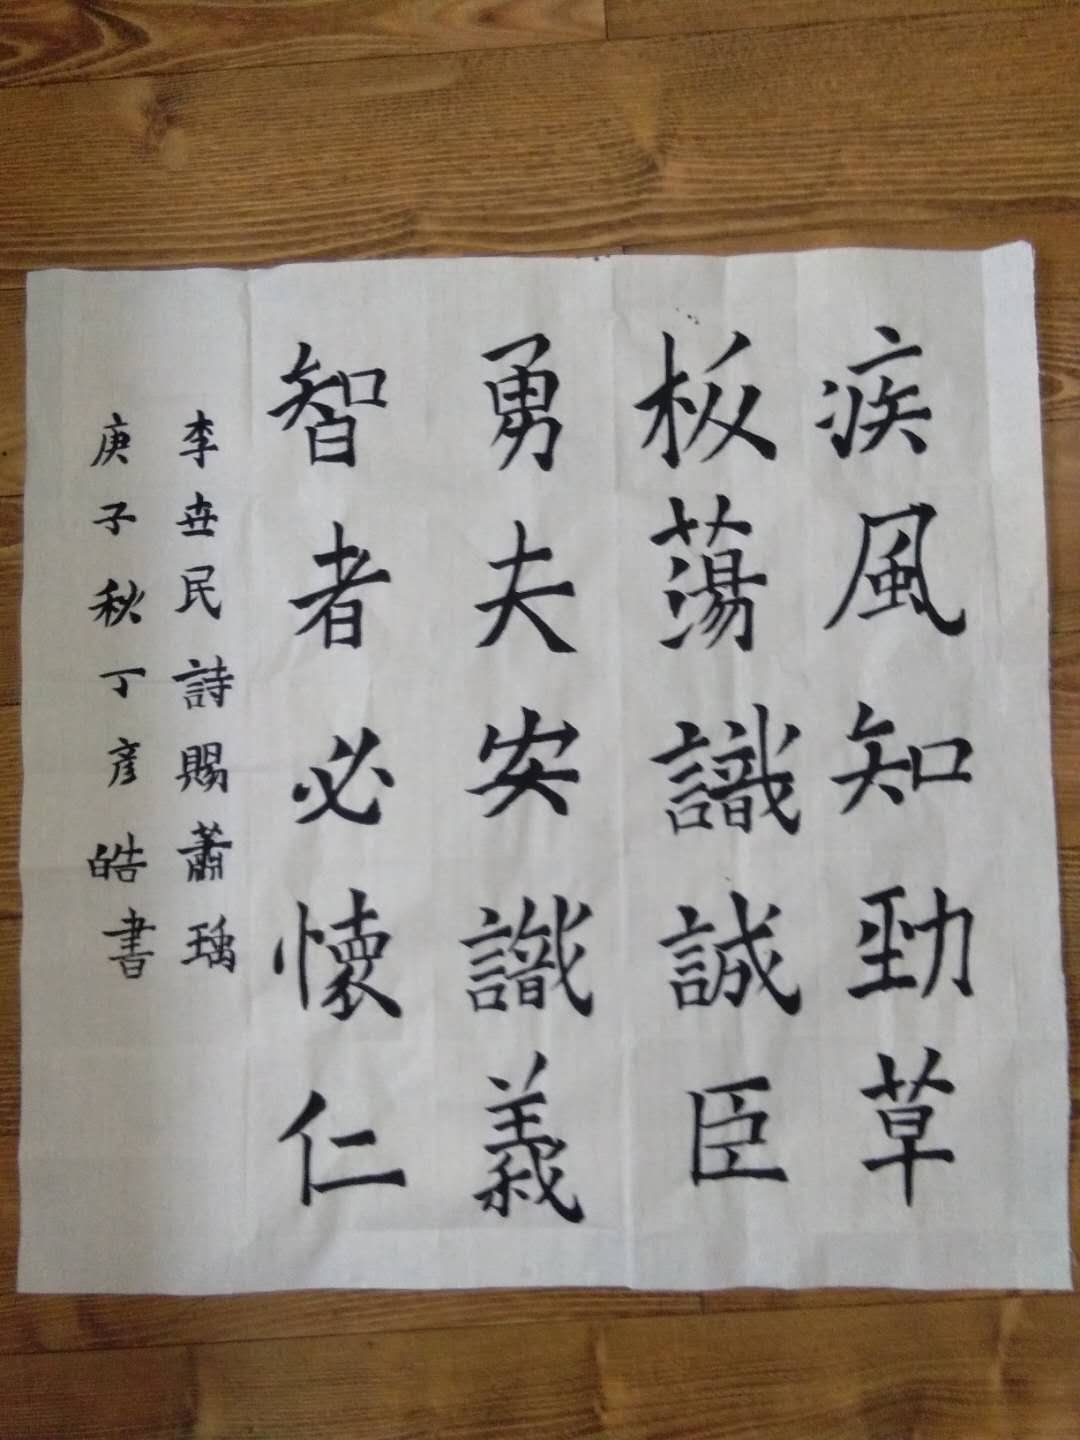 疾風知勁草
板蕩識誠臣
勇夫安識義
智者必懷仁
李世民詩賜蕭瑀
庚子秋丁彦皓書